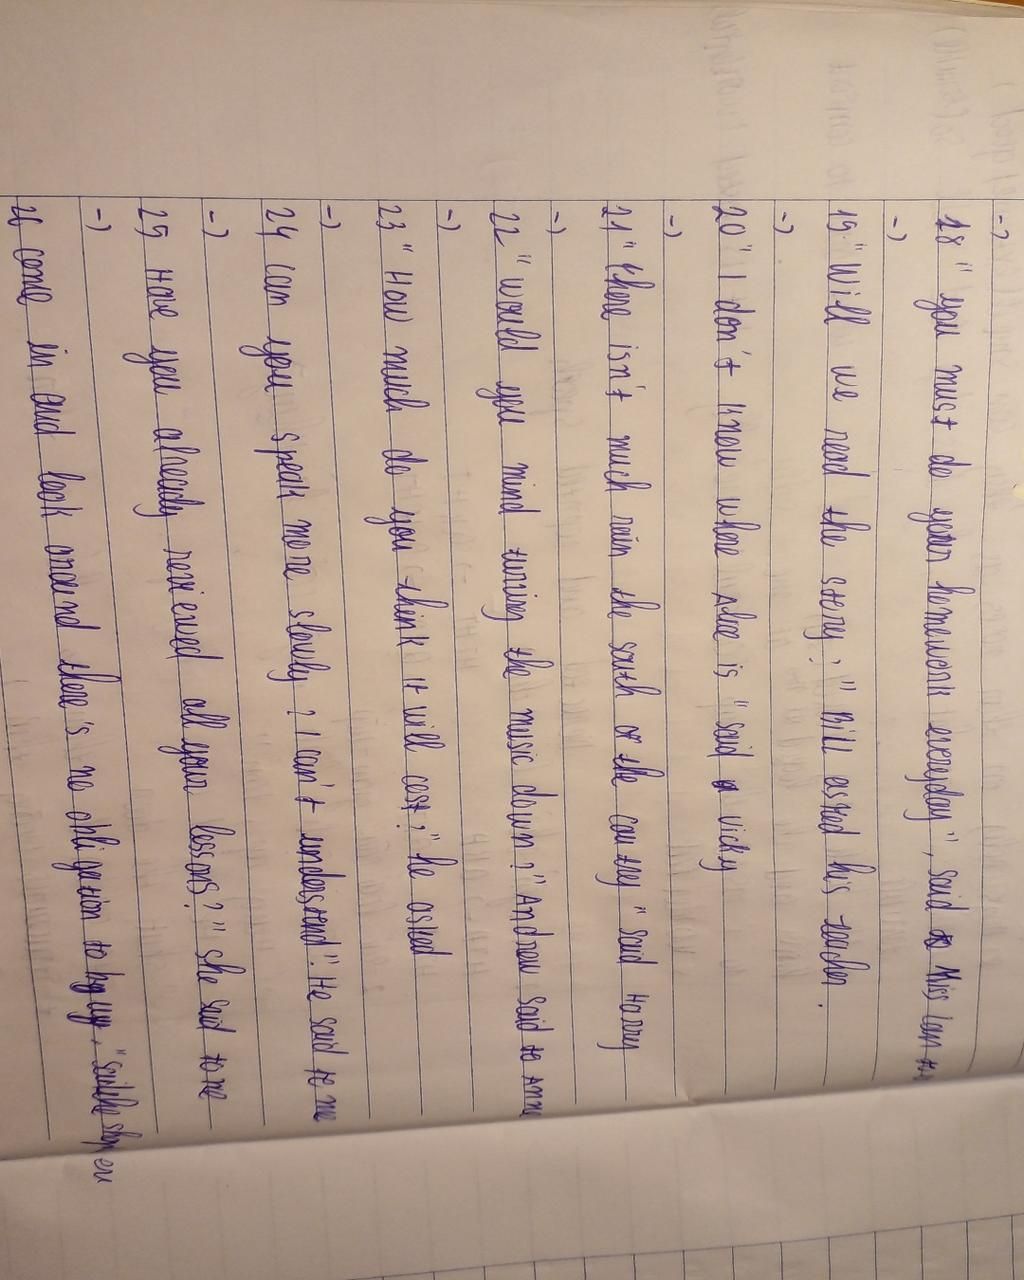 -)
18 " you must do your homework everyday", said Miss Lan to
-)
19 " Will we read the story ? " Bill asked his teacher.
-)
20 " I don't know where Alice is " said Vicky
-)
21 " there isn't much rain the south of the country " said Harry
-)
22 " would you mind turning the music down ? " Andrew said to Anne
-)
23 " How much do you think it will cost ? " he asked
-)
24 can you speak more slowly ? I can't understand ". He said to me
-)
25 Have you already reviewed all your lessons ? " she said to me
-)
26 come in and look around there's no obligation to buy , "